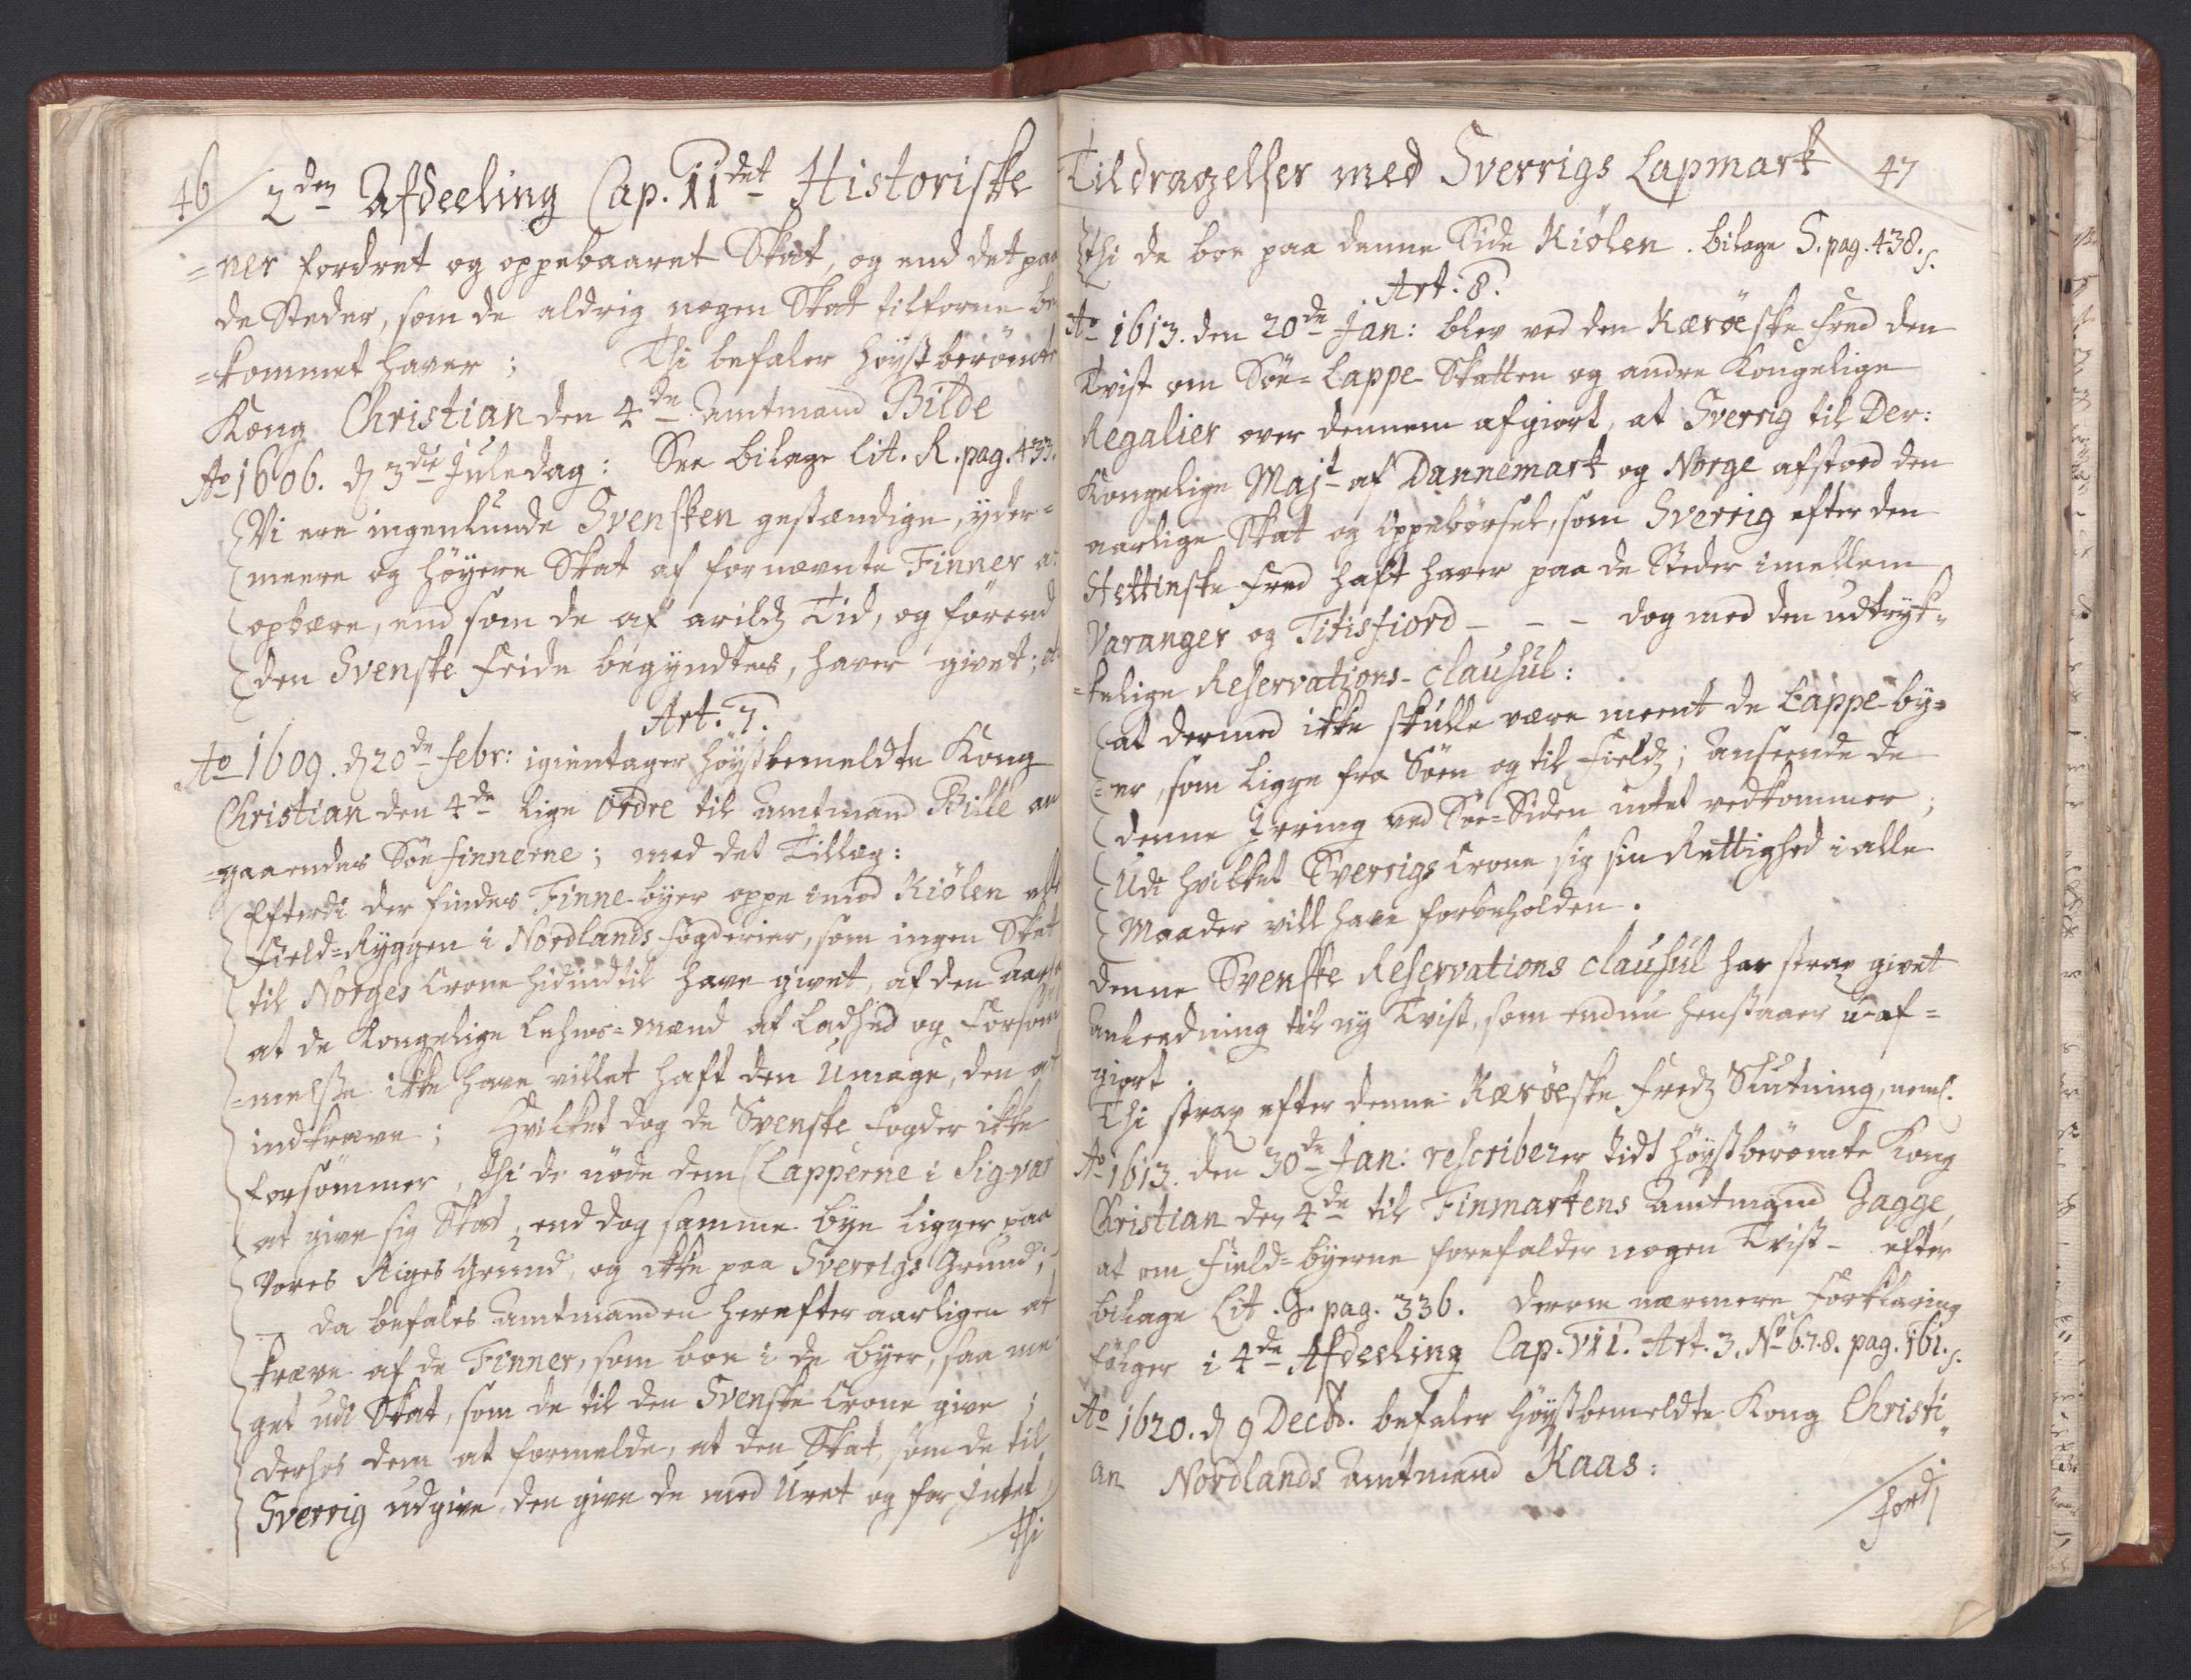 46 2den Afdeeling Cap. IIdet Historiske
=ner fordret og oppebaaret Skat, og end det paa
de Steder, som de aldrig nogen Skat tilforne be
=kommet haver ; Thi befaler Høystberömte
Kong Christian den 4de Amtmand Bilde
Ao 1606. d 3die Juledag: See bilage Lit. R. pag. 433.
Vi ere ingenlunde Svensken gestændige, yder=
meere og høyere Skat af fornævnte Finner at
opbære, end som de af arilds Tid, og förend
den Svenske Feide begyndtes, haver givet;
Art. 7.
Ao 1609. d 20de Febr: igientager Høystbemeldte Kong
Christian den 4de lige Ordre til Amtmand Bille an
=gaaendes Söe Finnerne; med det Tillæg:
Efterdi der findes Finne-byer oppe imod Kiölen
Field=Ryggen i Nordlands Fogderier, som ingen Skat
til Norges Crone hidindtil have givet, af den Aars
at de Kongelige Lehns=Mænd af Ladhed og Forsöm
=melße ikke have villet haft den Umage, den at
indkræve; Hvilket dog de Svenske Fogder ikke
forsömmer, Thi de nöde dem (Lapperne i Sig-var
at give sig Skat, end dog samme bye ligger paa
Vores Riges Grund, og ikke paa Sverrigs Grund;
– Da befales Amtmanden herefter aarligen at
kræve af de Finner, som boe i de byer, saa me
get udi Skat, som de til den Svenske Crone give ;
derhos dem at formelde, at den Skat, som de til
Sverrig udgive, den give de med Uret og for Intet
Thi
Tildragelser med Sverrigs Lapmark 47
Thi de boe paa denne Side Kiölen. bilage S. pag. 438.
Art: 8.
Ao 1613. den 20de Jan: blev ved den Kæröeske Fred den
Tvist om Söe=Lappe Skatten og andre Kongelige
Regalier over dennem afgiort, at Sverrig til Der:
Kongelige Majt af Dannemark og Norge afstoed den
aarlige Skat og Oppebörsel, som Sverrig efter den
Stettinske Fred haft haver paa de Steder imellem
Varanger og Titisfiord – – – dog med den udtryk=
=kelige Reservations-Clausul:
at dermed ikke skulle være meent de Lappe-by=
=er, som ligge fra Söen og til Fields; anseende de
denne Irring ved Söe=Siden intet vedkommer;
Udi hvilket Sverrigs Crone sig sin Rettighed i alle
Maader vill have forbeholden.
Denne Svenske Reservations Clausul har strax givet
anleedning til ny Tvist, som endnu henstaaer u-af=
giort.
Thi strax efter denne Kæröeske Freds Slutning, neml.
Ao 1613. den 30de Jan: rescriberer tidt Høystberömte Kong
Christian den 4de til Finmarkens Amtmand Gagge,
at om Field=byerne forefalder nogen Tvist – efter
bilage Lit. G. pag. 336. Derom nærmere Forklaring
fölger i 4de Afdeeling Cap. VII. Art. 3. No 6.7.8. pag. 161.
Ao 1620. d 9 Decb. befaler Høystbemeldte Kong Christi
an Nordlands Amtmand Kaas: